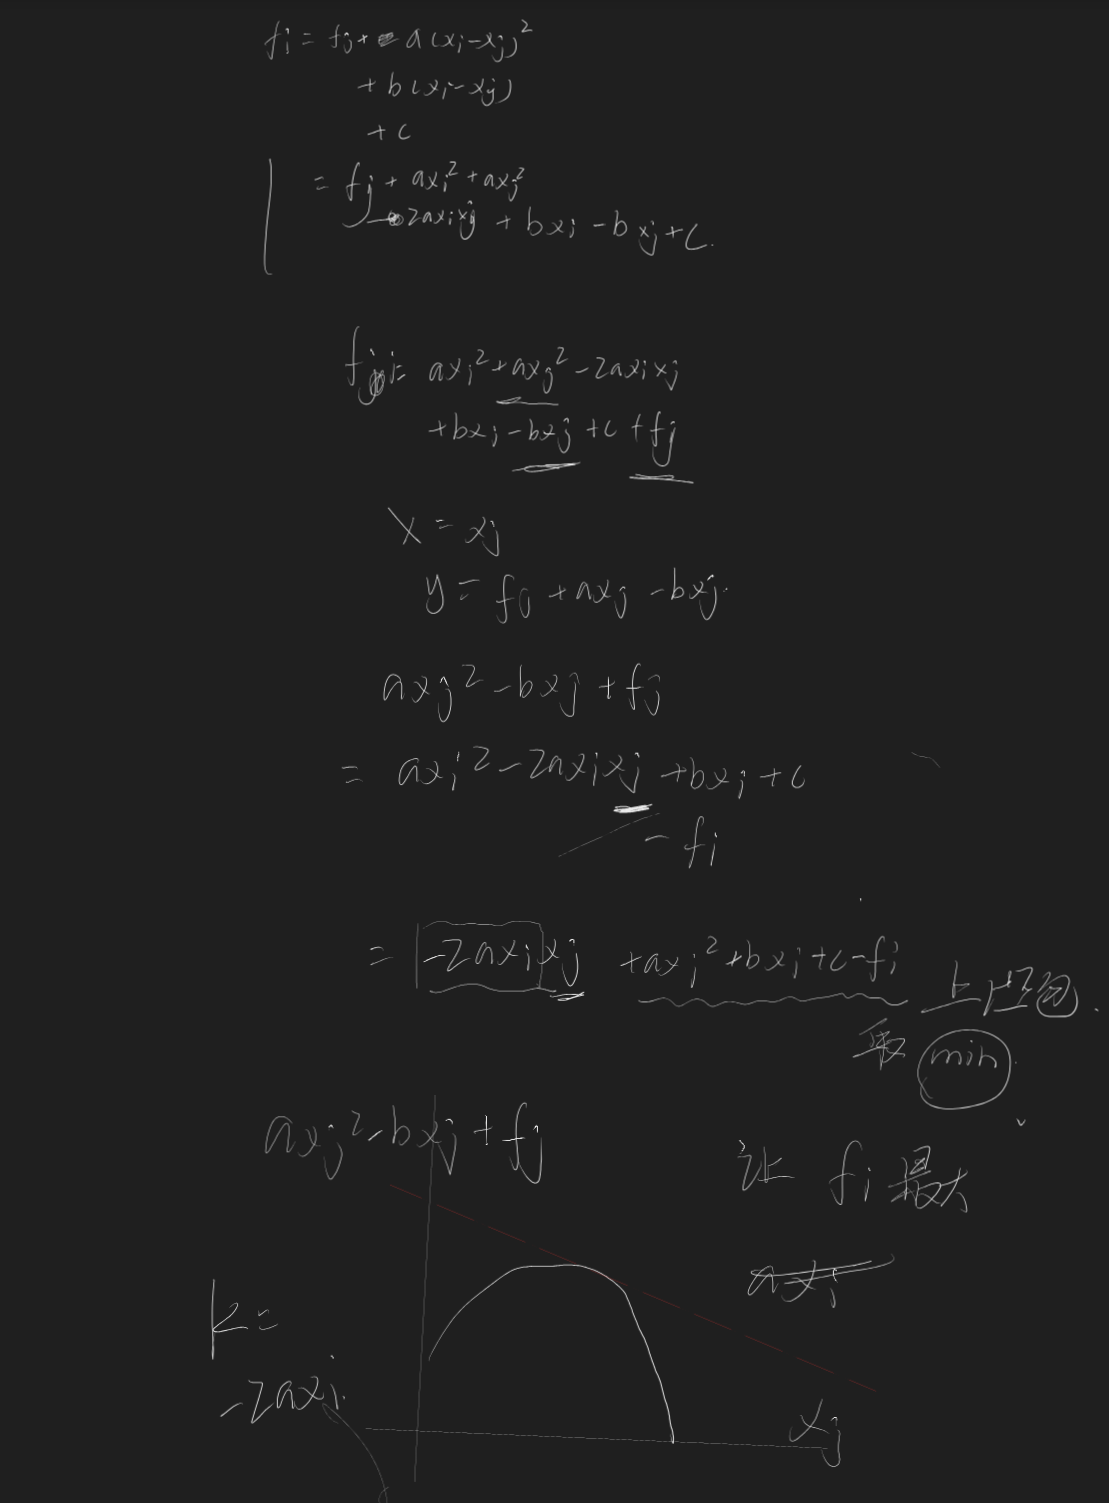 fi = fj + a(xi-xj)²
+ b(xi-xj)
+ c
= fj + axi² + axj²
- 2axixj + bxi - bxj + c.
fi = axi² + axj² - 2axixj
+ bxi - bxj + c + fj
x = xj
y = fj + axj - bxj.
axj² - bxj + fj
= axi² - 2axixj + bxi + c
- fi
= -2axixj + axi² + bxi + c - fi
上凸包.
取 min
axj² - bxj + fj
让 fi 最大
axi
k =
-2axi.
xj